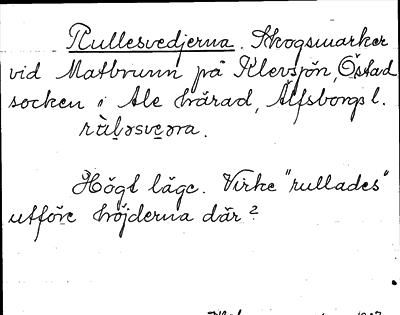 Rullesvedjerna. Skogsmarker
vid Matbrunn på Klevsjön, Östad
socken i Ale härad, Älfsborgs l.
Högt läge. Virke "rullades"
utför höjderna där?